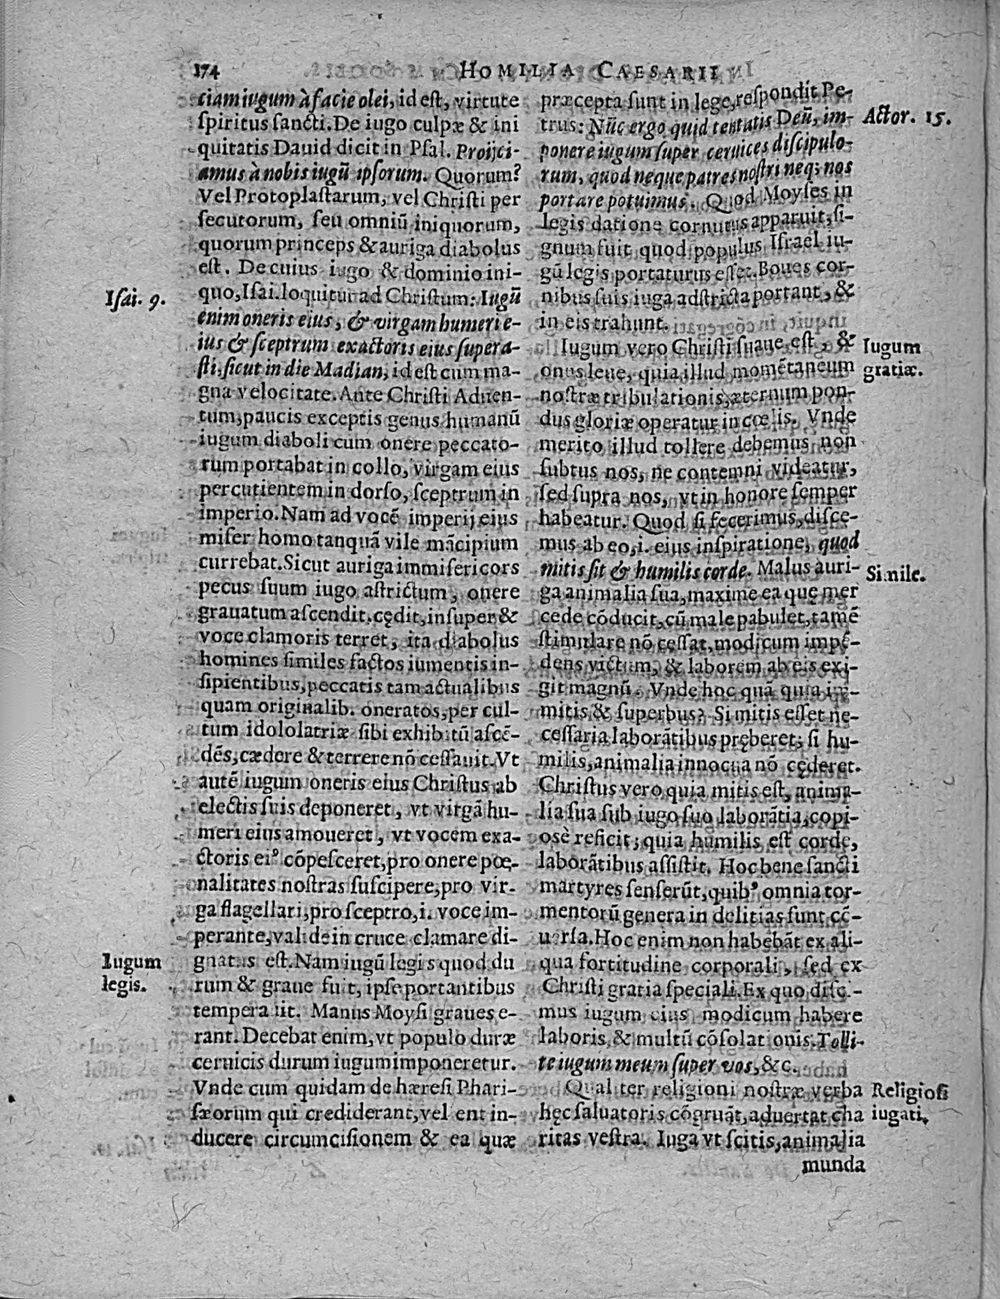 174 HOMILIA CAESARII
ciam iugum à facie olei, id est, virtute
spiritus sancti. De iugo culpæ & ini
quitatis Dauid dicit in Psal. Proijci-
amus à nobis iugū ipsorum. Quorum?
Vel Protoplastarum, vel Christi per
secutorum, seu omniū iniquorum,
quorum princeps & auriga diabolus
est. De cuius iugo & dominio ini-
Isai. 9.
quo, Isai. loquitur ad Christum: Iugū
enim oneris eius, & virgam humeri e-
ius & sceptrum exactoris eius supera-
sti, sicut in die Madian, id est cum ma-
gna velocitate. Ante Christi Aduen-
tum, paucis exceptis genus humanū
iugum diaboli cum onere peccato-
rum portabat in collo, virgam eius
percutientem in dorso, sceptrum in
imperio. Nam ad vocē imperij eius
miser homo tanquā vile mācipium
currebat. Sicut auriga immisericors
pecus suum iugo astrictum, onere
grauatum ascendit, cędit, insuper &
voce clamoris terret, ita diabolus
homines similes factos iumentis in-
sipientibus, peccatis tam actualibus
quam originalib. oneratos, per cul-
tum idololatriæ sibi exhibitū ascē-
dēs, cædere & terrere nō cessauit. Vt
autē iugum oneris eius Christus ab
electis suis deponeret, vt virgā hu-
meri eius amoueret, vt vocem exa-
ctoris eiꝰ cōpesceret, pro onere pœ-
nalitates nostras suscipere, pro vir-
ga flagellari, pro sceptro, i. voce im-
perante, valide in cruce clamare di-
Iugum
legis.
gnatus est. Nam iugū legis quod du
rum & graue fuit, ipse portantibus
temperauit. Manus Moysi graues, e-
rant. Decebat enim, vt populo duræ
ceruicis durum iugum imponeretur.
Vnde cum quidam de hæresi Phari-
sæorum qui crediderant, vellent in-
ducere circumcisionem & ea quæ
præcepta sunt in lege, respondit Pe-
Actor. 15.
trus: Nūc ergo quid tentatis Deū, im-
ponere iugum super ceruices discipulo-
rum, quod neque patres nostri neq; nos
portare potuimus. Quod Moyses in
legis datione cornutus apparuit, si-
gnum fuit quod populus Israel iu-
gū legis portaturus esset. Boues cor-
nibus suis iuga adstricta portant, &
in eis trahunt.
Iugum
gratiæ.
Iugum vero Christi suaue est, &
onus leue, quia illud momētaneum
nostræ tribulationis, æternum pon-
dus gloriæ operatur in cœlis. Vnde
merito illud tollere debemus non
subtus nos, ne contemni videatur,
sed supra nos, vt in honore semper
habeatur. Quod si fecerimus, disce-
mus ab eo, i. eius inspiratione, quod
Simile.
mitis sit & humilis corde. Malus auri-
ga animalia sua, maxime ea quę mer
cede cōducit, cū male pabulet, tamē
stimulare nō cessat, modicum impē-
dens victum, & laborem ab eis exi-
git magnū. Vnde hoc quā quia im-
mitis & superbus? Si mitis esset ne-
cessaria laborātibus pręberet; si hu-
milis, animalia innocua nō cęderet.
Christus vero quia mitis est, anima-
lia sua sub iugo suo laborātia, copi-
osè reficit; quia humilis est corde,
laborātibus assistit. Hoc bene sancti
martyres senserūt, quibꝰ omnia tor-
mentorū genera in delitias sunt cō-
uersa. Hoc enim non habebāt ex ali-
qua fortitudine corporali, sed ex
Christi gratia speciali. Ex quo disc-
mus iugum eius modicum habere
laboris, & multū cōsolationis. Tolli-
te iugum meum super vos, &c.
Religiosi
iugati.
Qualiter religioni nostræ verba
hęc saluatoris cōgruāt, aduertat cha
ritas vestra. Iuga vt scitis, animalia
munda